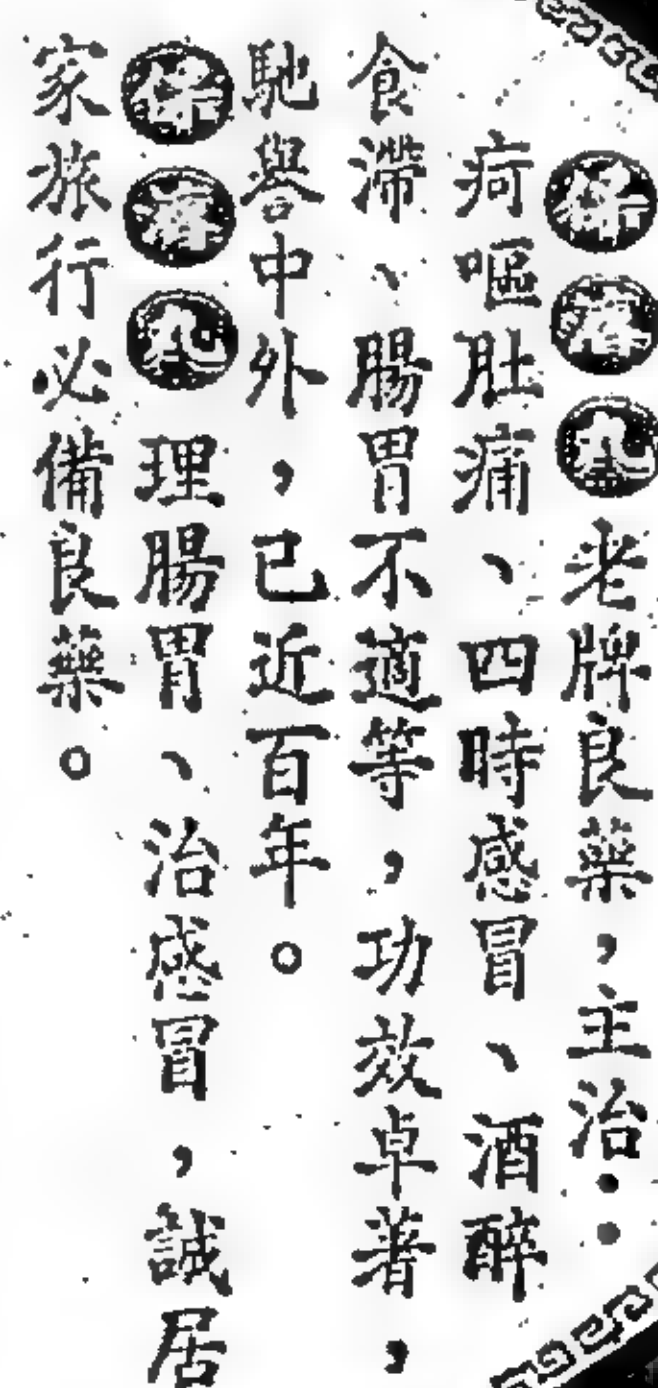 保濟丸老牌良藥，主治：
疴嘔肚痛、四時感冒、酒醉
食滯、腸胃不適等，功效卓著，
馳譽中外，已近百年。
保濟丸理腸胃、治感冒，誠居
家旅行必備良藥。